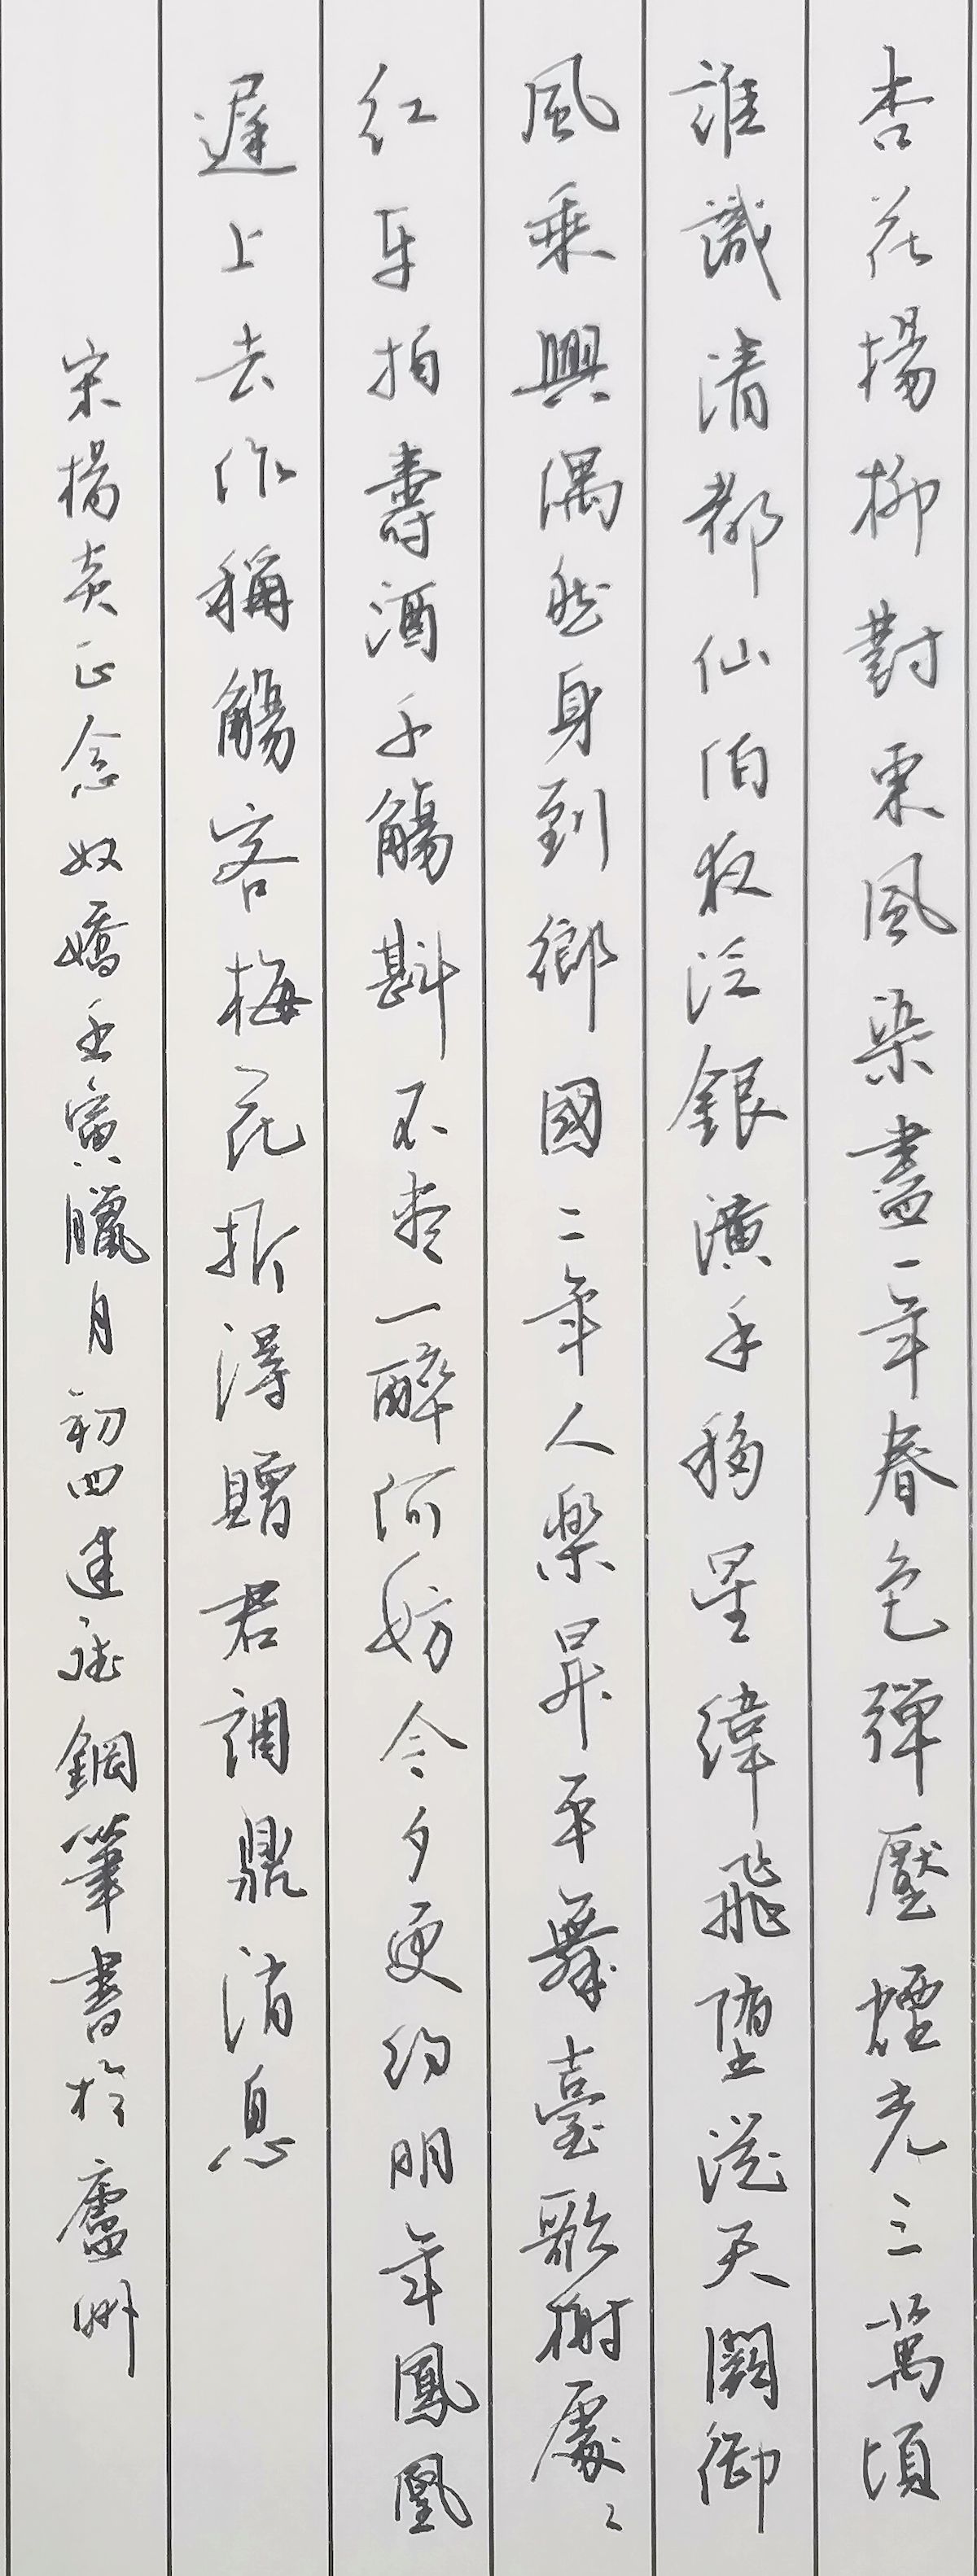 杏花楊柳對東風染盡一年春色彈壓煙光三萬頃
誰識清都仙伯夜泛銀潢手移星緯飛墮從天闕御
風乘興偶然身到鄉國二年人樂昇平舞臺歌榭處〻
紅牙拍壽酒千觴斟不盡一醉何妨今夕更約明年鳳凰
遲上去作稱觴客梅花折得贈君調鼎消息
宋楊炎正念奴嬌壬寅臘月初四建強鋼筆書於廬州